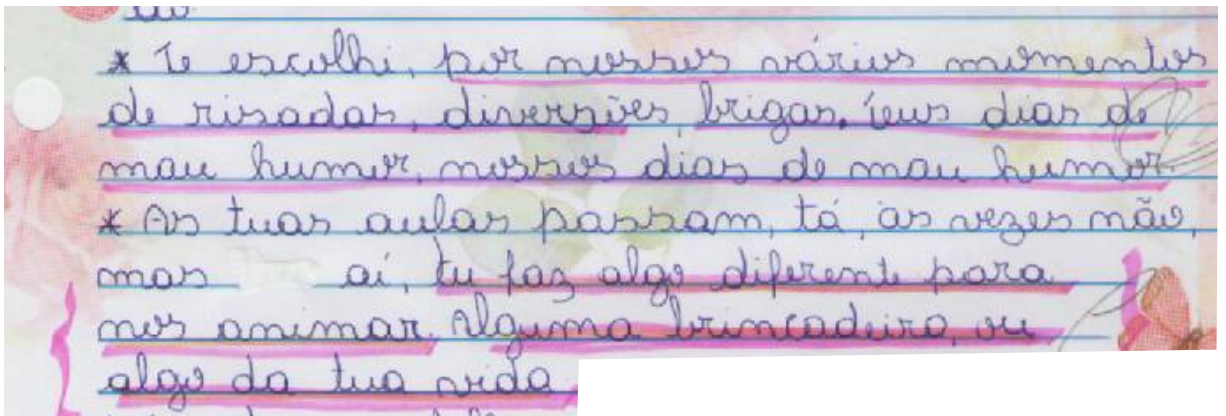 * Te escolhi, por nossos vários momentos
de risadas, diversões, brigas, seus dias de
mau humor, nossos dias de mau humor.
* As tuas aulas passam, tá, às vezes não,
mas aí, tu faz algo diferente para
nos animar. Alguma brincadeira, ou
algo da tua vida